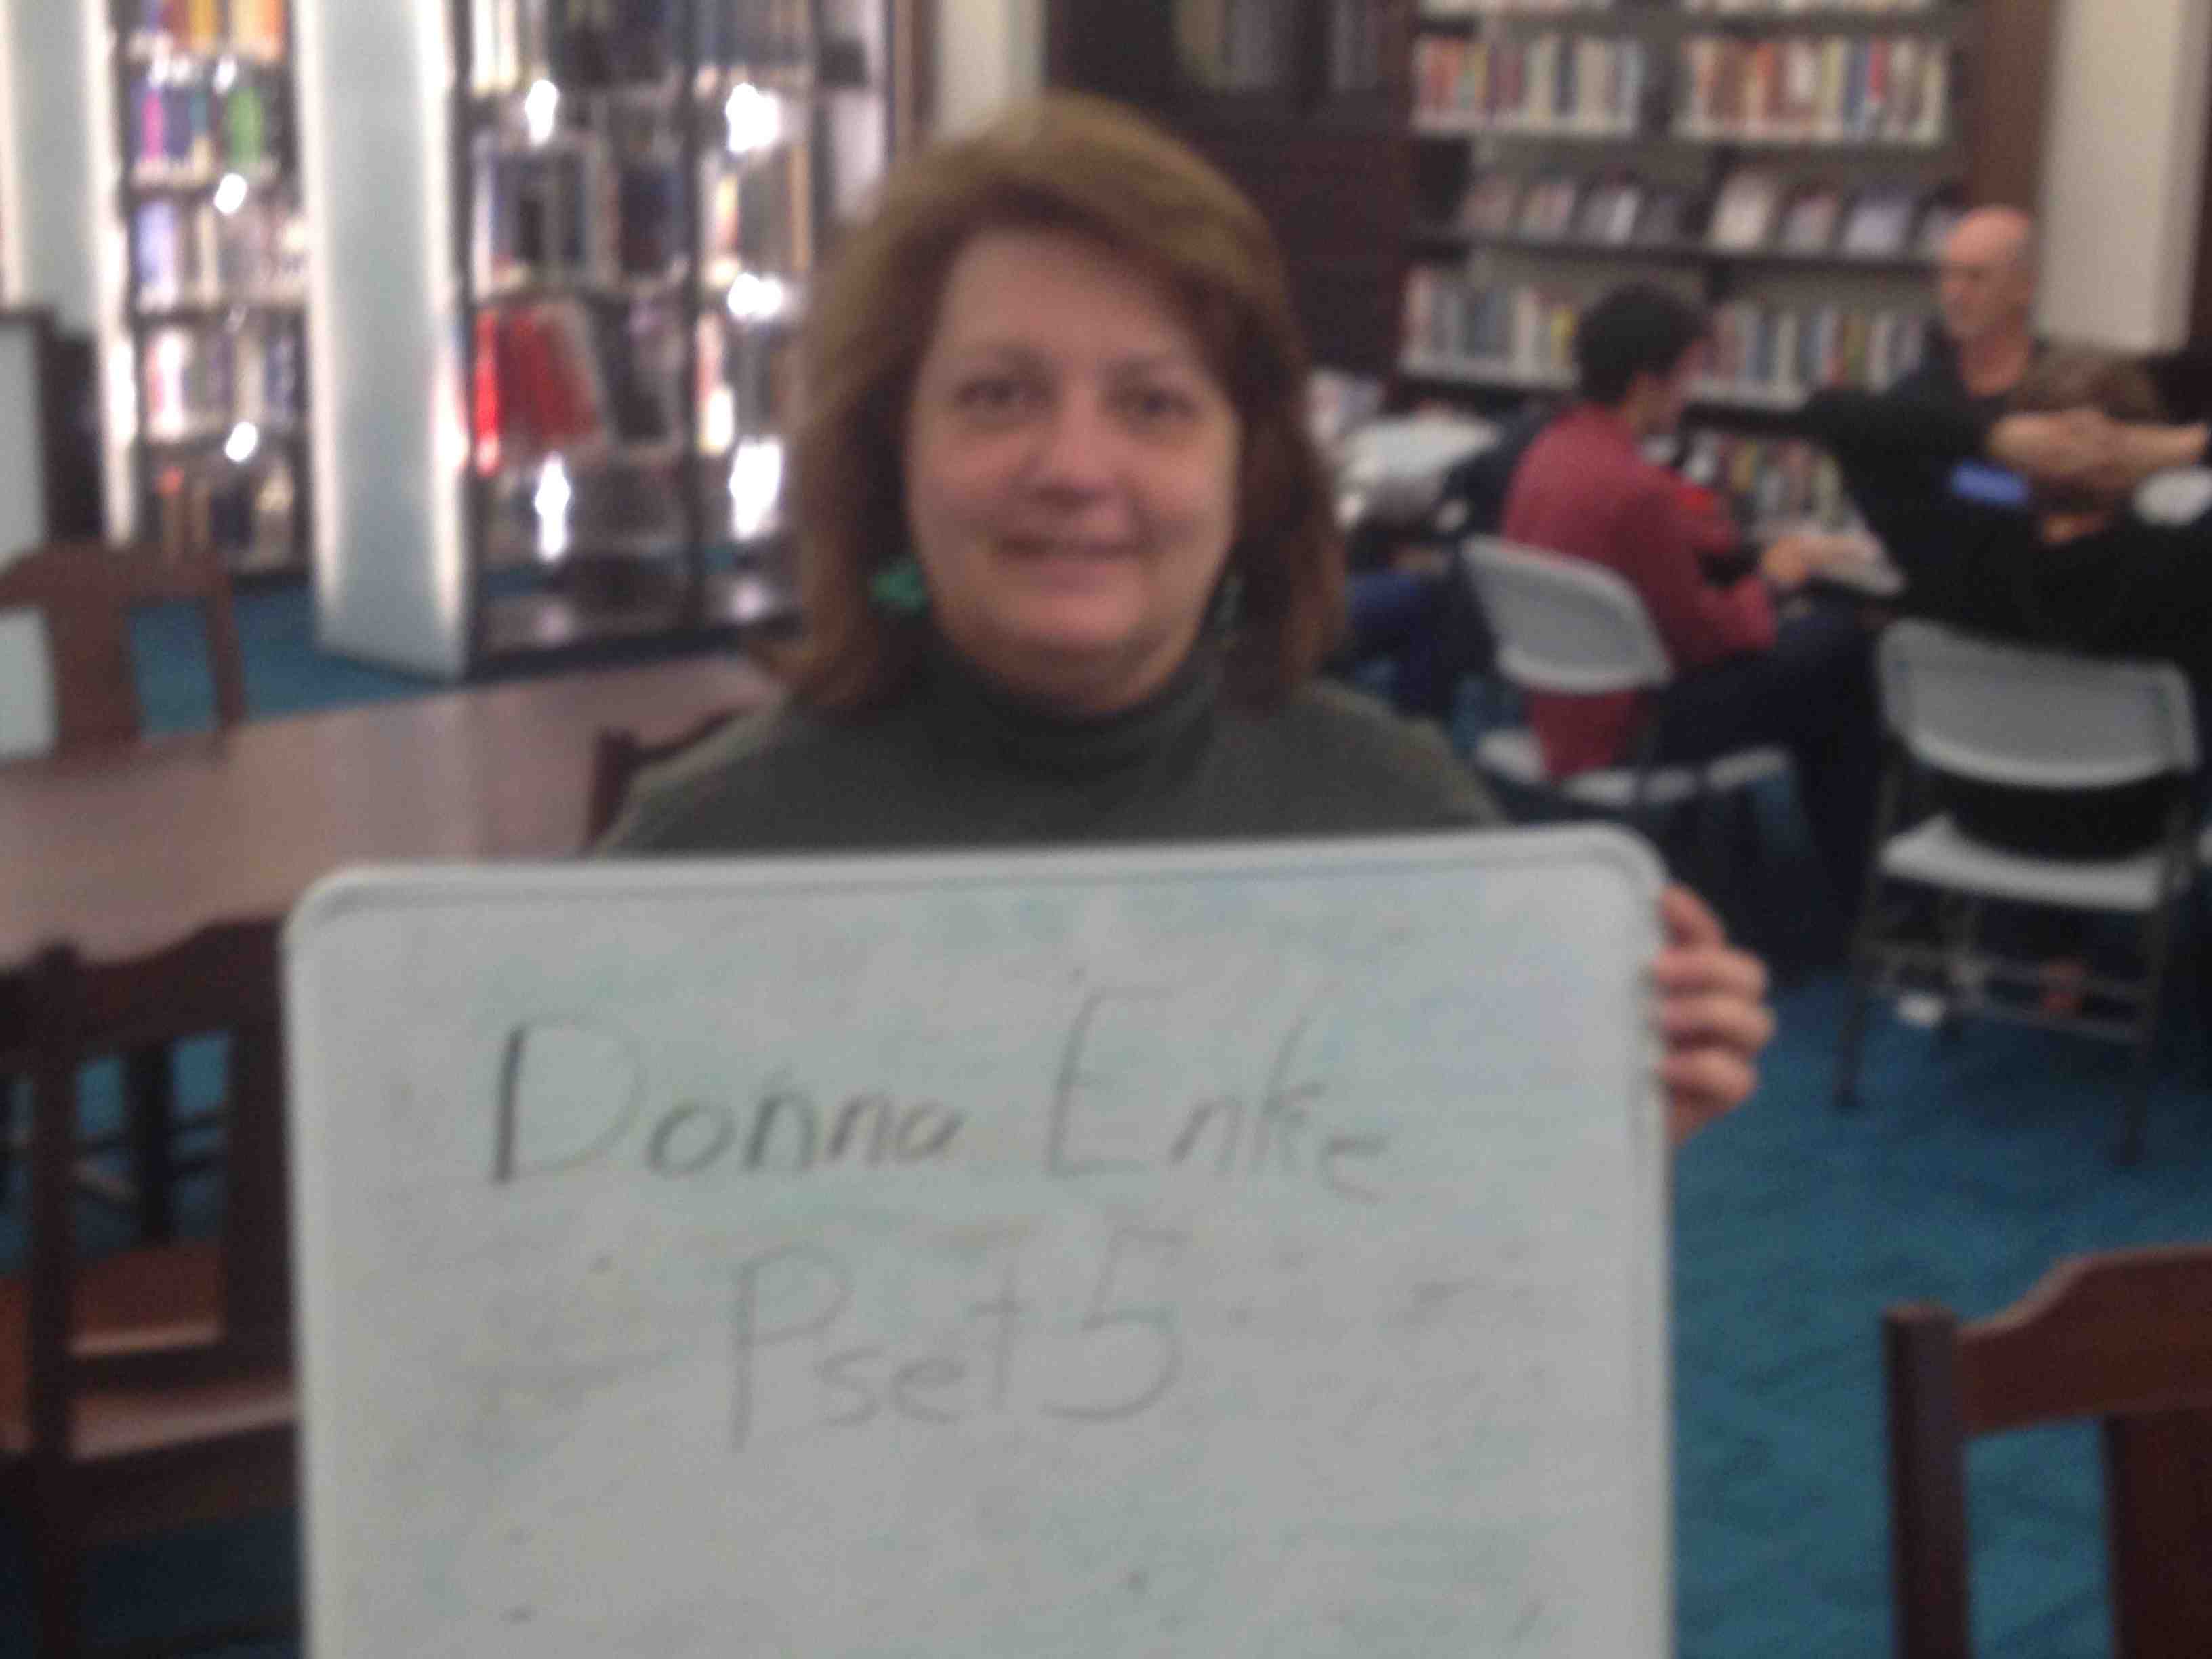 Donna Enke
Pset 5